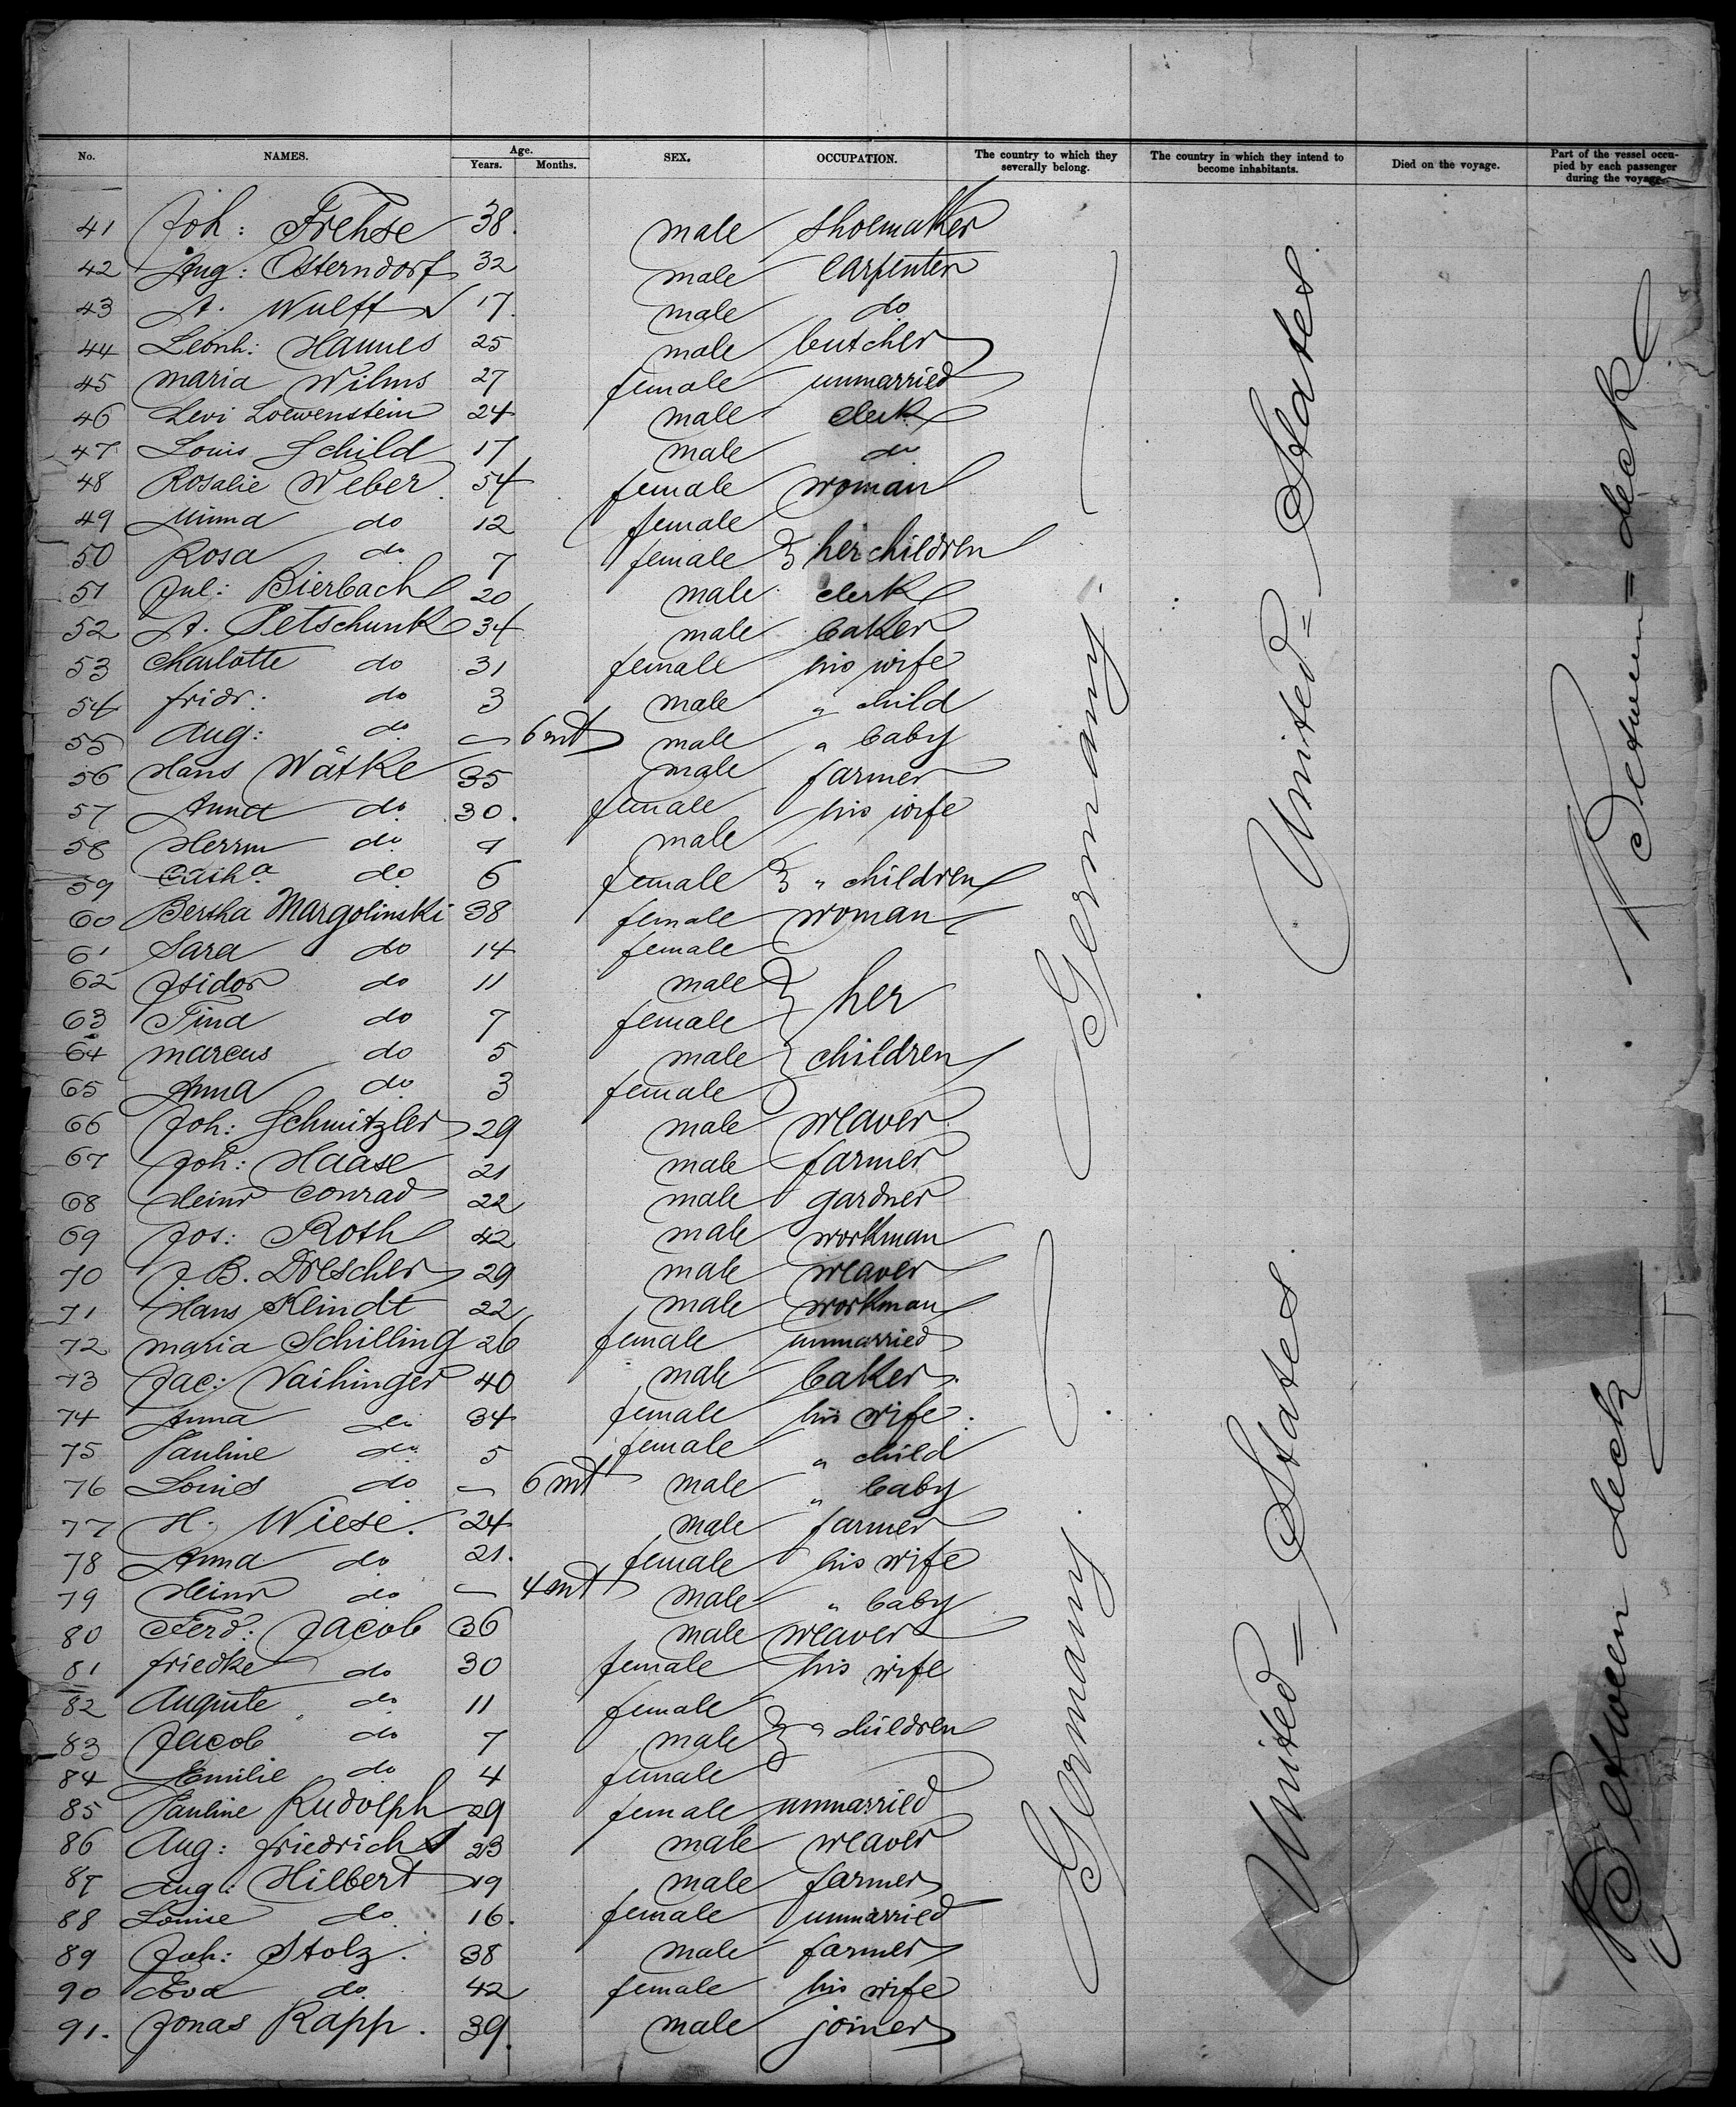 No. NAMES. Age. Years. Months. SEX. OCCUPATION. The country to which they severally belong. The country in which they intend to become inhabitants. Died on the voyage. Part of the vessel occupied by each passenger during the voyage.
41 Joh: Frehse 38. male shoemaker
42 Aug: Osterndorf 32 male carpenter
43 A. Wulff 17. male do
44 Leonh: Hannes 25 male butcher
45 Maria Wilms 27 female unmarried
46 Levi Loewenstein 24 male clerk
47 Louis Schild 17 male do
48 Rosalie Weber 54 female woman
49 Minna do 12 female
50 Rosa do 7 female } her children
51 Jul: Bierbach 20 male clerk
52 A. Petschunk 34 male baker
53 Charlotte do 31 female his wife
54 fridr: do 3 male " child
55 Aug: do — 6 mt male " baby
56 Hans Wätke 35 male farmer
57 Anna do 30. female his wife
58 Herrm do male
59 Cath.a do 6 female } " children
60 Bertha Margolinski 38 female woman
61 Sara do 14 female
62 Isidor do 11 male
63 Tina do 7 female } her
64 marcus do 5 male children
65 Anna do 3 female
66 Joh: Schmitzler 29 male weaver
67 Joh: Haase 21 male farmer
68 Heinr Conrad 22 male gardner
69 Jos: Roth 42 male workman
70 J B. Drescher 29 male weaver
71 Hans Klindt 22 male workman
72 maria Schilling 26 female unmarried
73 Jac: Vaihinger 40 male baker
74 Anna do 34 female his wife
75 Pauline do 5 female " child
76 Louis do — 6 mt male " baby
77 H. Wiese. 24 male farmer
78 Anna do 21. female his wife
79 Heinr do — 4 mt male " baby
80 Ferd: Jacob 36 male weaver
81 friedke do 30 female his wife
82 Auguste do 11 female
83 Jacob do 7 male } " children
84 Emilie do 4 female
85 Pauline Rudolph 29 female unmarried
86 Aug: friedrich 23 male weaver
87 Aug: Hilbert 19 male farmer
88 Louise do 16. female unmarried
89 Joh: Stolz. 38 male farmer
90 Eva do. 42 female his wife
91. Jonas Rapp. 39. male joiner
Germany.
United = States.
Between = deck
Germany.
United = States.
Between deck